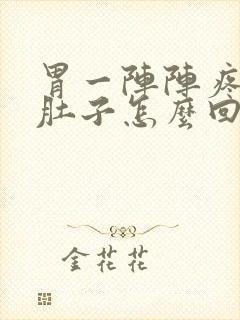 胃一陣陣疼
肚子怎麼回
金花花